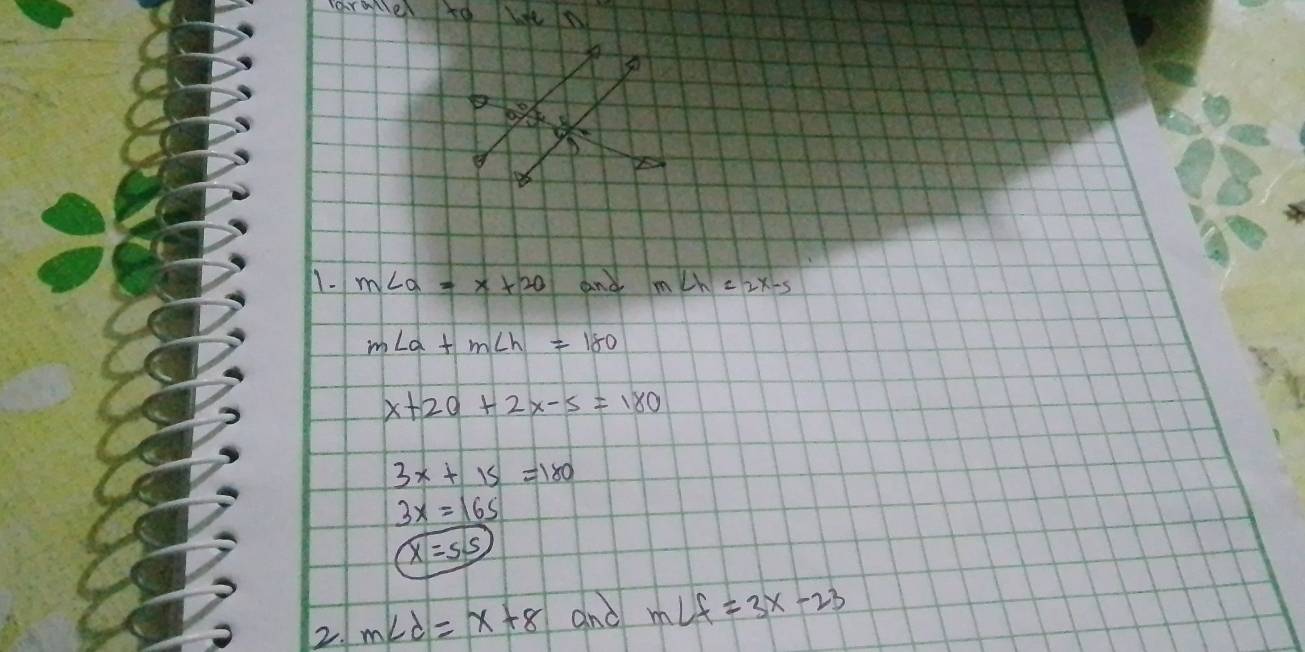 Parallel to line n
1. m∠a = x + 20 and m∠h = 2x-5
m∠a + m∠h = 180
x+20 + 2x-5 = 180
3x + 15 = 180
3x = 165
x = 55
2. m∠d = x + 8 and m∠f = 3x - 23